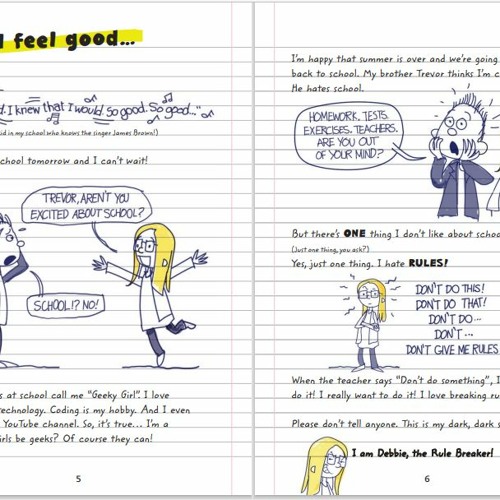 I feel good...
I knew that I would. So good. So good..."
kid in my school who knows the singer James Brown!)
school tomorrow and I can't wait!
TREVOR, AREN'T YOU
EXCITED ABOUT SCHOOL?
SCHOOL!? NO!
at school call me "Geeky Girl". I love
technology. Coding is my hobby. And I even
YouTube channel. So, it's true... I'm a
girls be geeks? Of course they can!
5
I'm happy that summer is over and we're going
back to school. My brother Trevor thinks I'm
He hates school.
HOMEWORK. TESTS.
EXERCISES. TEACHERS.
ARE YOU OUT
OF YOUR MIND?
But there's ONE thing I don't like about
(Just one thing, you ask?)
Yes, just one thing. I hate RULES!
DON'T DO THIS!
DON'T DO THAT!
DON'T DO...
DON'T...
DON'T GIVE ME RULES
When the teacher says "Don't do something", I
do it! I really want to do it! I love breaking
Please don't tell anyone. This is my dark, dark
I am Debbie, the Rule Breaker!
6